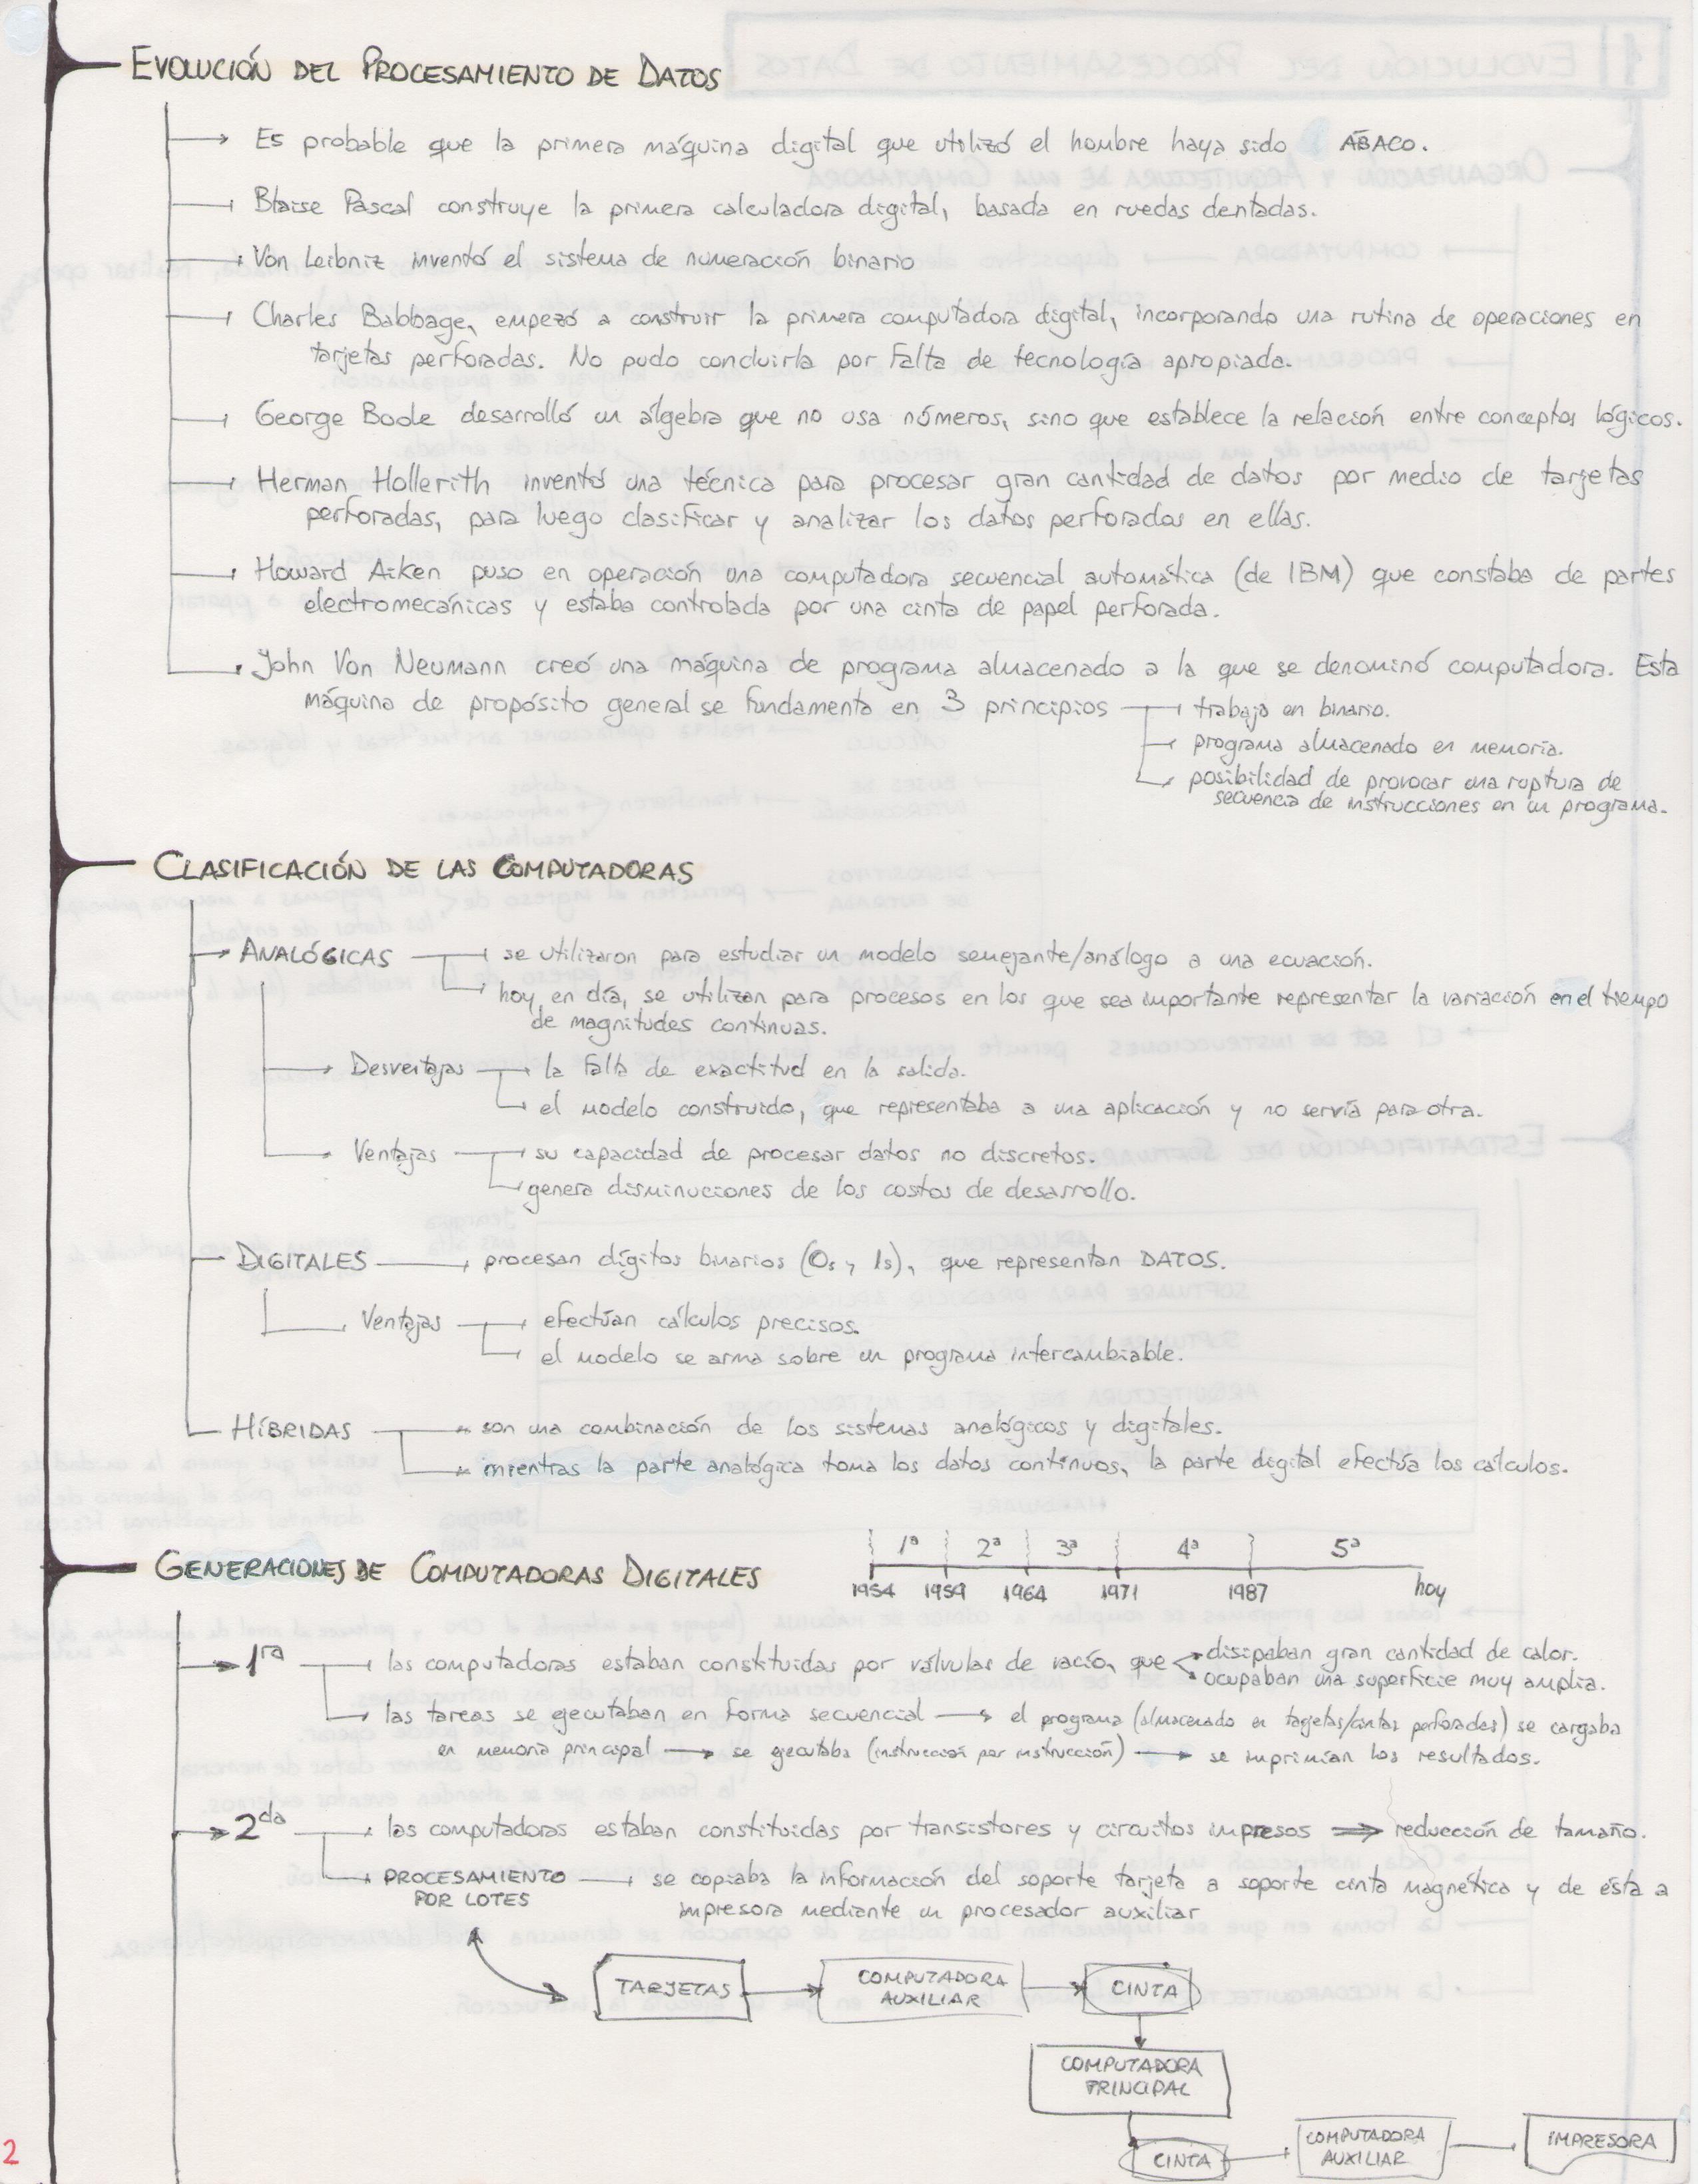 EVOLUCIÓN DEL PROCESAMIENTO DE DATOS
Es probable que la primera máquina digital que utilizó el hombre haya sido ABACO.
Blaise Pascal construye la primera calculadora digital, basada en ruedas dentadas.
Von Leibniz inventó el sistema de numeración binario
Charles Babbage, empezó a construir la primera computadora digital, incorporando una rutina de operaciones en
tarjetas perforadas. No pudo concluirla por falta de tecnología apropiada.
George Boole desarrolló un álgebra que no usa números, sino que establece la relación entre conceptos lógicos.
Herman Hollerith inventó una técnica para procesar gran cantidad de datos por medio de tarjetas
perforadas, para luego clasificar y analizar los datos perforados en ellas.
Howard Aiken puso en operación una computadora secuencial automática (de IBM) que constaba de partes
electromecánicas y estaba controlada por una cinta de papel perforada.
John Von Neumann creó una máquina de programa almacenado a la que se denominó computadora. Esta
máquina de propósito general se fundamenta en 3 principios
trabajo en binario.
programa almacenado en memoria.
posibilidad de provocar una ruptura de
secuencia de instrucciones en un programa.
CLASIFICACIÓN DE LAS COMPUTADORAS
ANALÓGICAS
se utilizaron para estudiar un modelo semejante/análogo a una ecuación.
hoy en día, se utilizan para procesos en los que sea importante representar la variación en el tiempo
de magnitudes continuas.
Desventajas
la falta de exactitud en la salida.
el modelo construido, que representaba a una aplicación y no servía para otra.
Ventajas
su capacidad de procesar datos no discretos.
genera disminuciones de los costos de desarrollo.
DIGITALES
procesan dígitos binarios (0s y 1s), que representan DATOS.
Ventajas
efectúan cálculos precisos.
el modelo se arma sobre un programa intercambiable.
HÍBRIDAS
son una combinación de los sistemas analógicos y digitales.
mientras la parte analógica toma los datos continuos, la parte digital efectúa los cálculos.
GENERACIONES DE COMPUTADORAS DIGITALES
1ª 2ª 3ª 4ª 5ª
1954 1959 1964 1971 1987 hoy
1ra
las computadoras estaban constituidas por válvulas de vacío, que
disipaban gran cantidad de calor.
ocupaban una superficie muy amplia.
las tareas se ejecutaban en forma secuencial → el programa (almacenado en tarjetas/cintas perforadas) se cargaba
en memoria principal → se ejecutaba (instrucción por instrucción) → se imprimían los resultados.
2da
las computadoras estaban constituidas por transistores y circuitos impresos ⇒ reducción de tamaño.
PROCESAMIENTO
POR LOTES
se copiaba la información del soporte tarjeta a soporte cinta magnética y de ésta a
impresora mediante un procesador auxiliar
TARJETAS
COMPUTADORA
AUXILIAR
CINTA
COMPUTADORA
PRINCIPAL
CINTA
COMPUTADORA
AUXILIAR
IMPRESORA
2